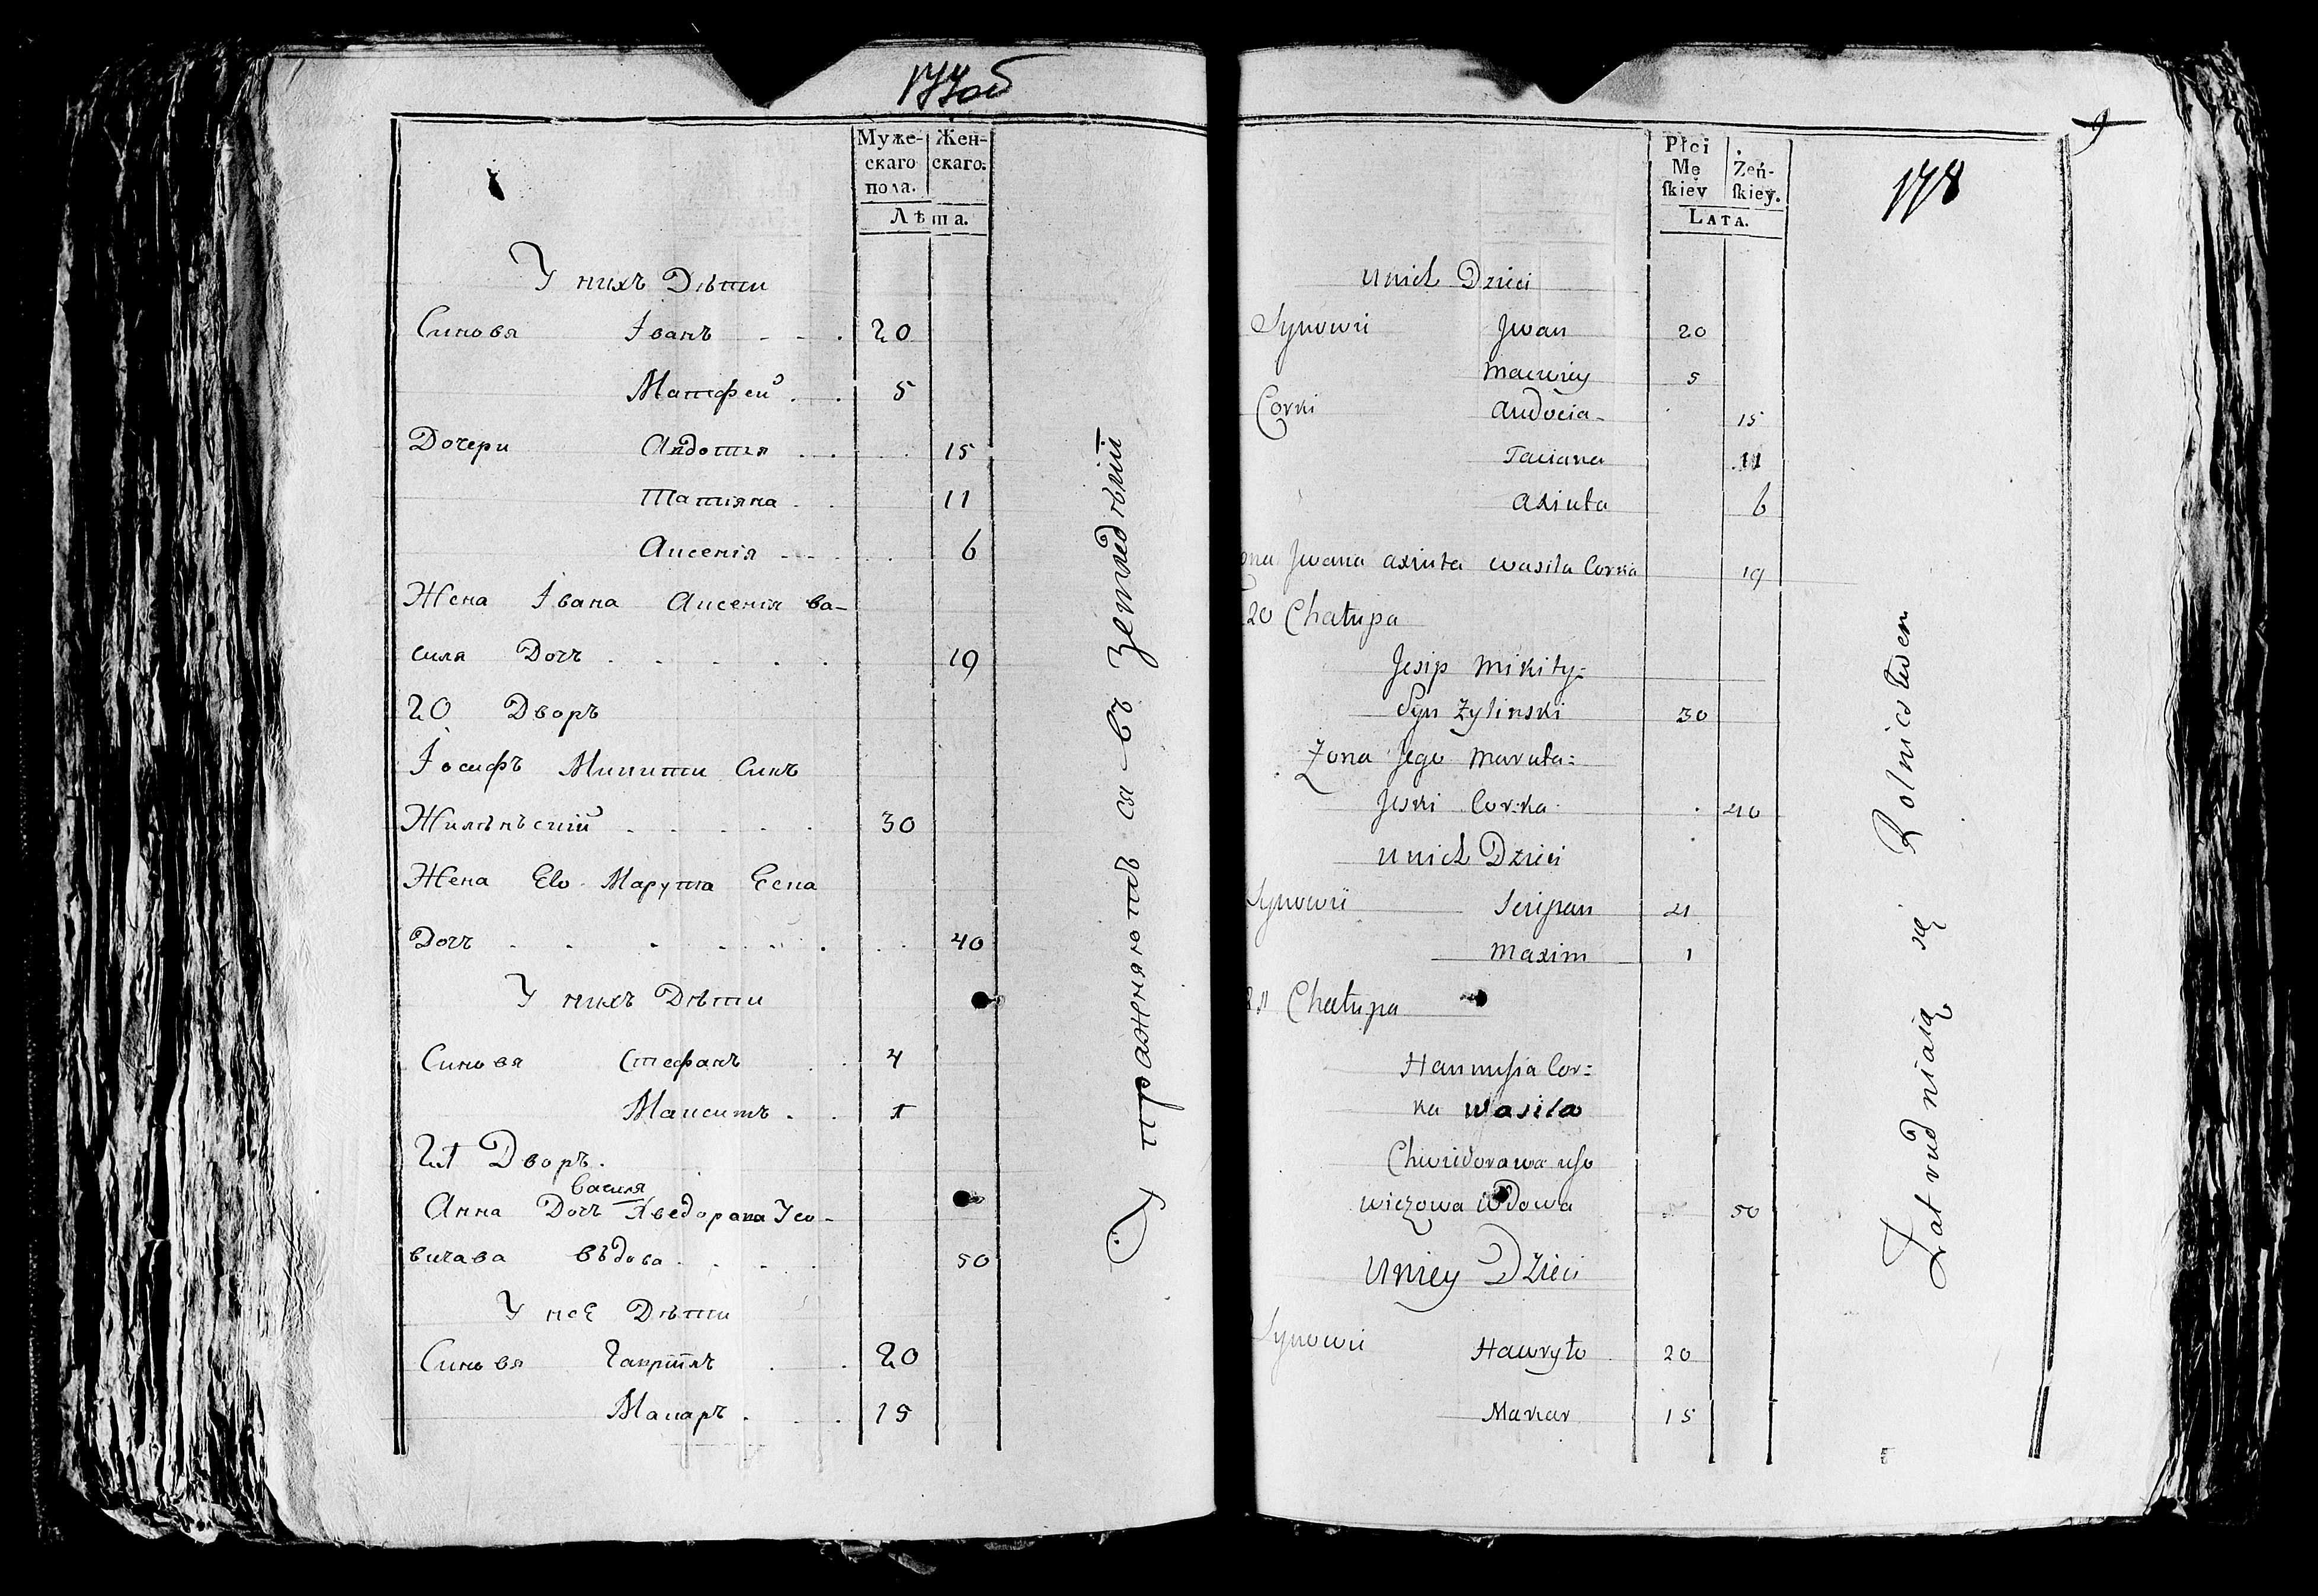 177об
Муже-
скаго
пола.
Жен-
скаго.
Лѣта.
У нихъ Дѣти
Синовя Іванъ 20
Матфей 5
Дочери Авдотия 15
Татияна 11
Аксенія 6
Жена Івана Аксенія ва-
силя Дочъ 19
20 Дворъ
Іосифъ Микити Синъ
Жилѣнъский 30
Жена Его Марута Еска
Дочъ 40
У нихъ Дѣти
Синовя Стефанъ 4
Максимъ 1
21 Дворъ.
василя
Анна Дочъ Хведорова Усо-
вичава въдова 50
У неЕ Дѣти
Синовя Гаврііль 20
Макаръ 15
Упражняютъ ся въ земледѣліи
9
178
Płci
Mę
ſkiey
Żeń-
ſkiey.
LATA.
unich Dzieci
Synowii Jwan 20
Maciwiey 5
Corki Audocia 15
Taciana 11
Axiuta 6
ona Jwana axiuta wasila Corka 19
20 Chałupa
Jesip Mikity=
Syn Zylinski 30
Zona Jego Maruta=
Jeski Corka 40
unich Dzieci
Synowii Sciepan 4
Maxim 1
21 Chałupa
Hannuſia Cor=
ka wasila
Chwiedorawa uſo
wiczowa wdowa 50
uniey Dzieci
Synowii Hawryło 20
Makar 15
Zatrudniaią się Rolnicstwem